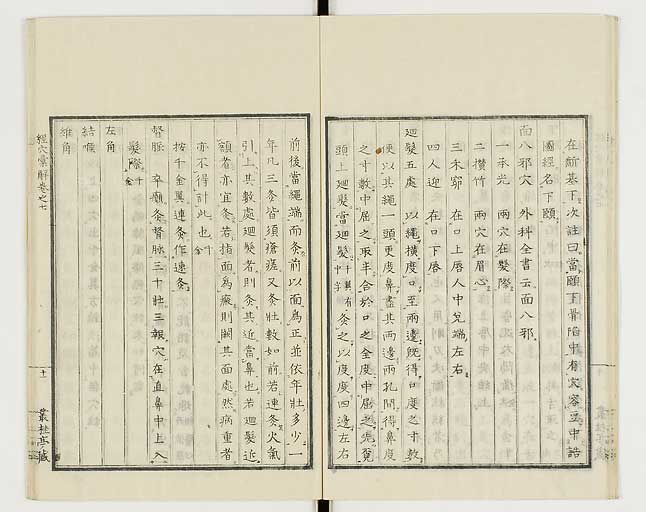 在齗基下次註曰當頤下骨陷中有穴容豆中誥
圖經名下頤
面八邪穴　外科全書云面八邪
一承光　兩穴在髮際
二攅竹　兩穴在眉心
三禾窌　在口上唇人中兌端左右
四人迎　在口下唇
廻髮五處　以繩橫度口至兩邊既得口度之寸數
便以其繩一頭更度鼻盡其兩邊兩孔間得鼻度
之寸數中屈之取半合於口之全度中屈之先覓
頭上廻髮當廻髮中灸之以度度四邊左右
前後當繩端而灸前以面為正並依年壯多少一
年凡三灸皆須瘡瘥又灸壯數如前若連灸火氣
引上其數處廻髮者則灸其近當鼻也若廻髮近
額者亦宜灸若指面為瘢則闕其面處然病重者
亦不得計此也千金
按千金翼連灸作速灸
督脈　卒癲灸督脈三十壯三報穴在直鼻中上入
髮際千金
左角
結喉
維角
經穴彙解卷之七
十一
叢桂亭藏